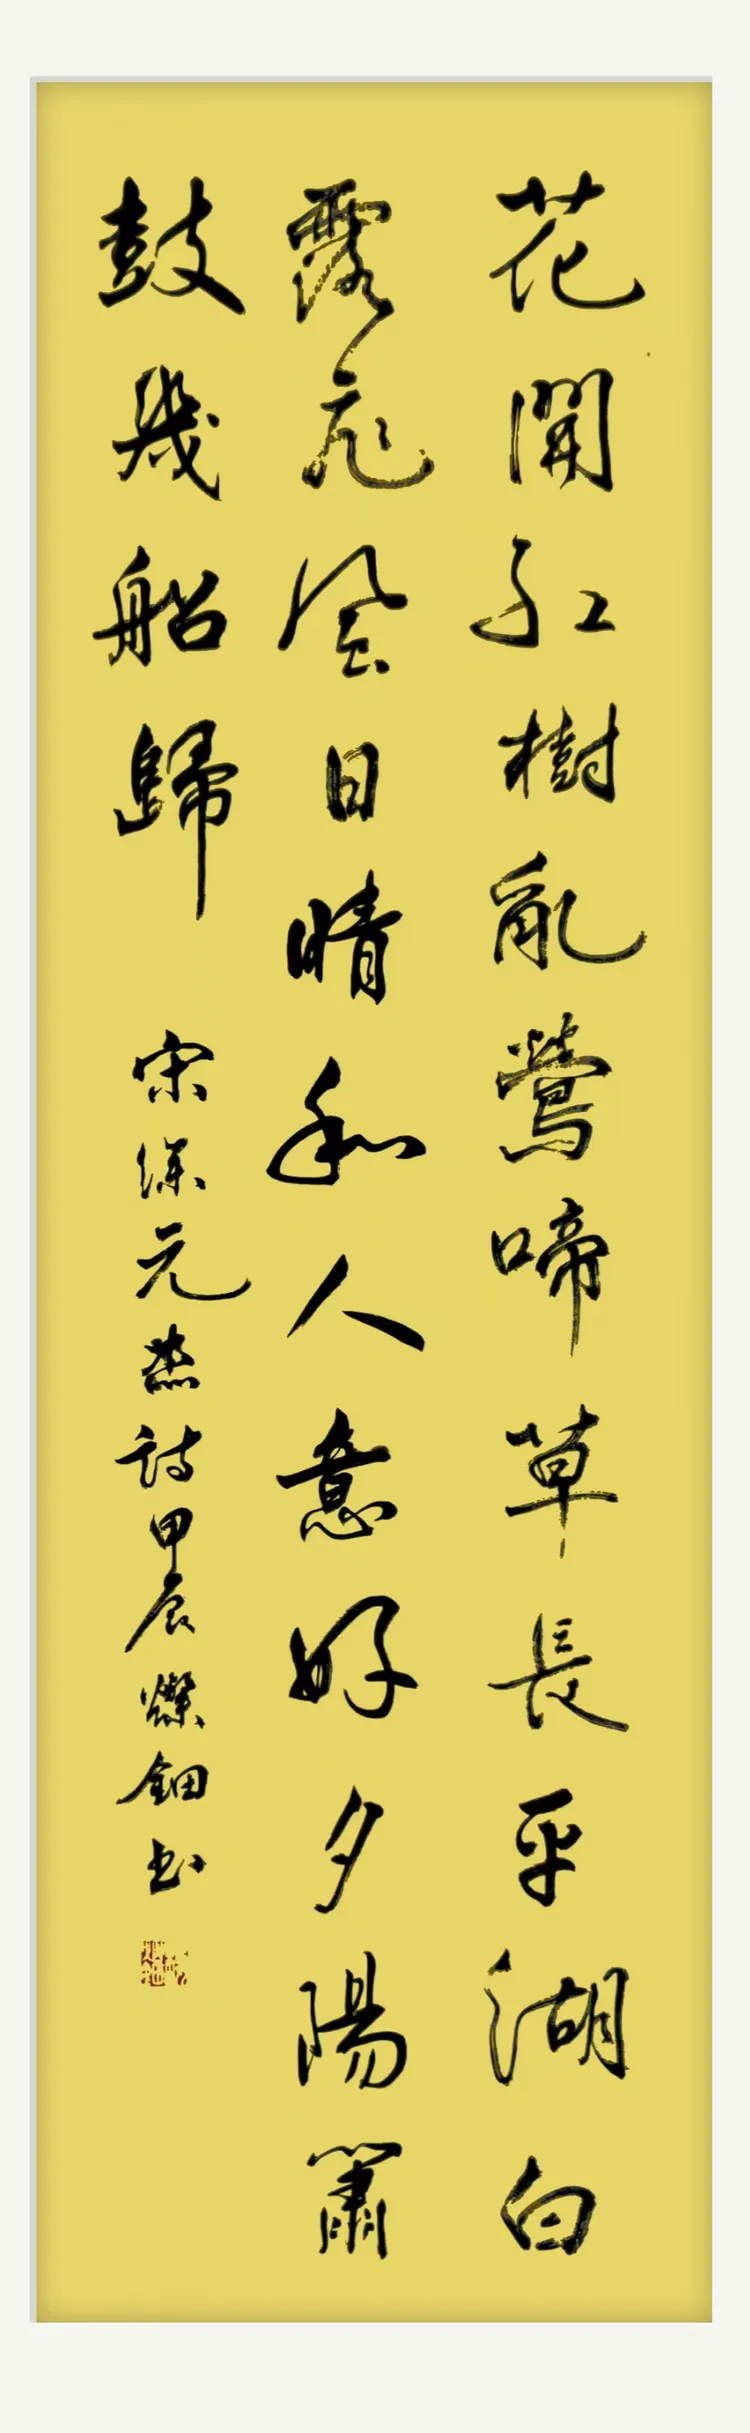 花開紅樹亂鶯啼草長平湖白
露飛風日晴和人意好夕陽簫
鼓幾船歸
宋徐元杰詩甲辰燦鈿书